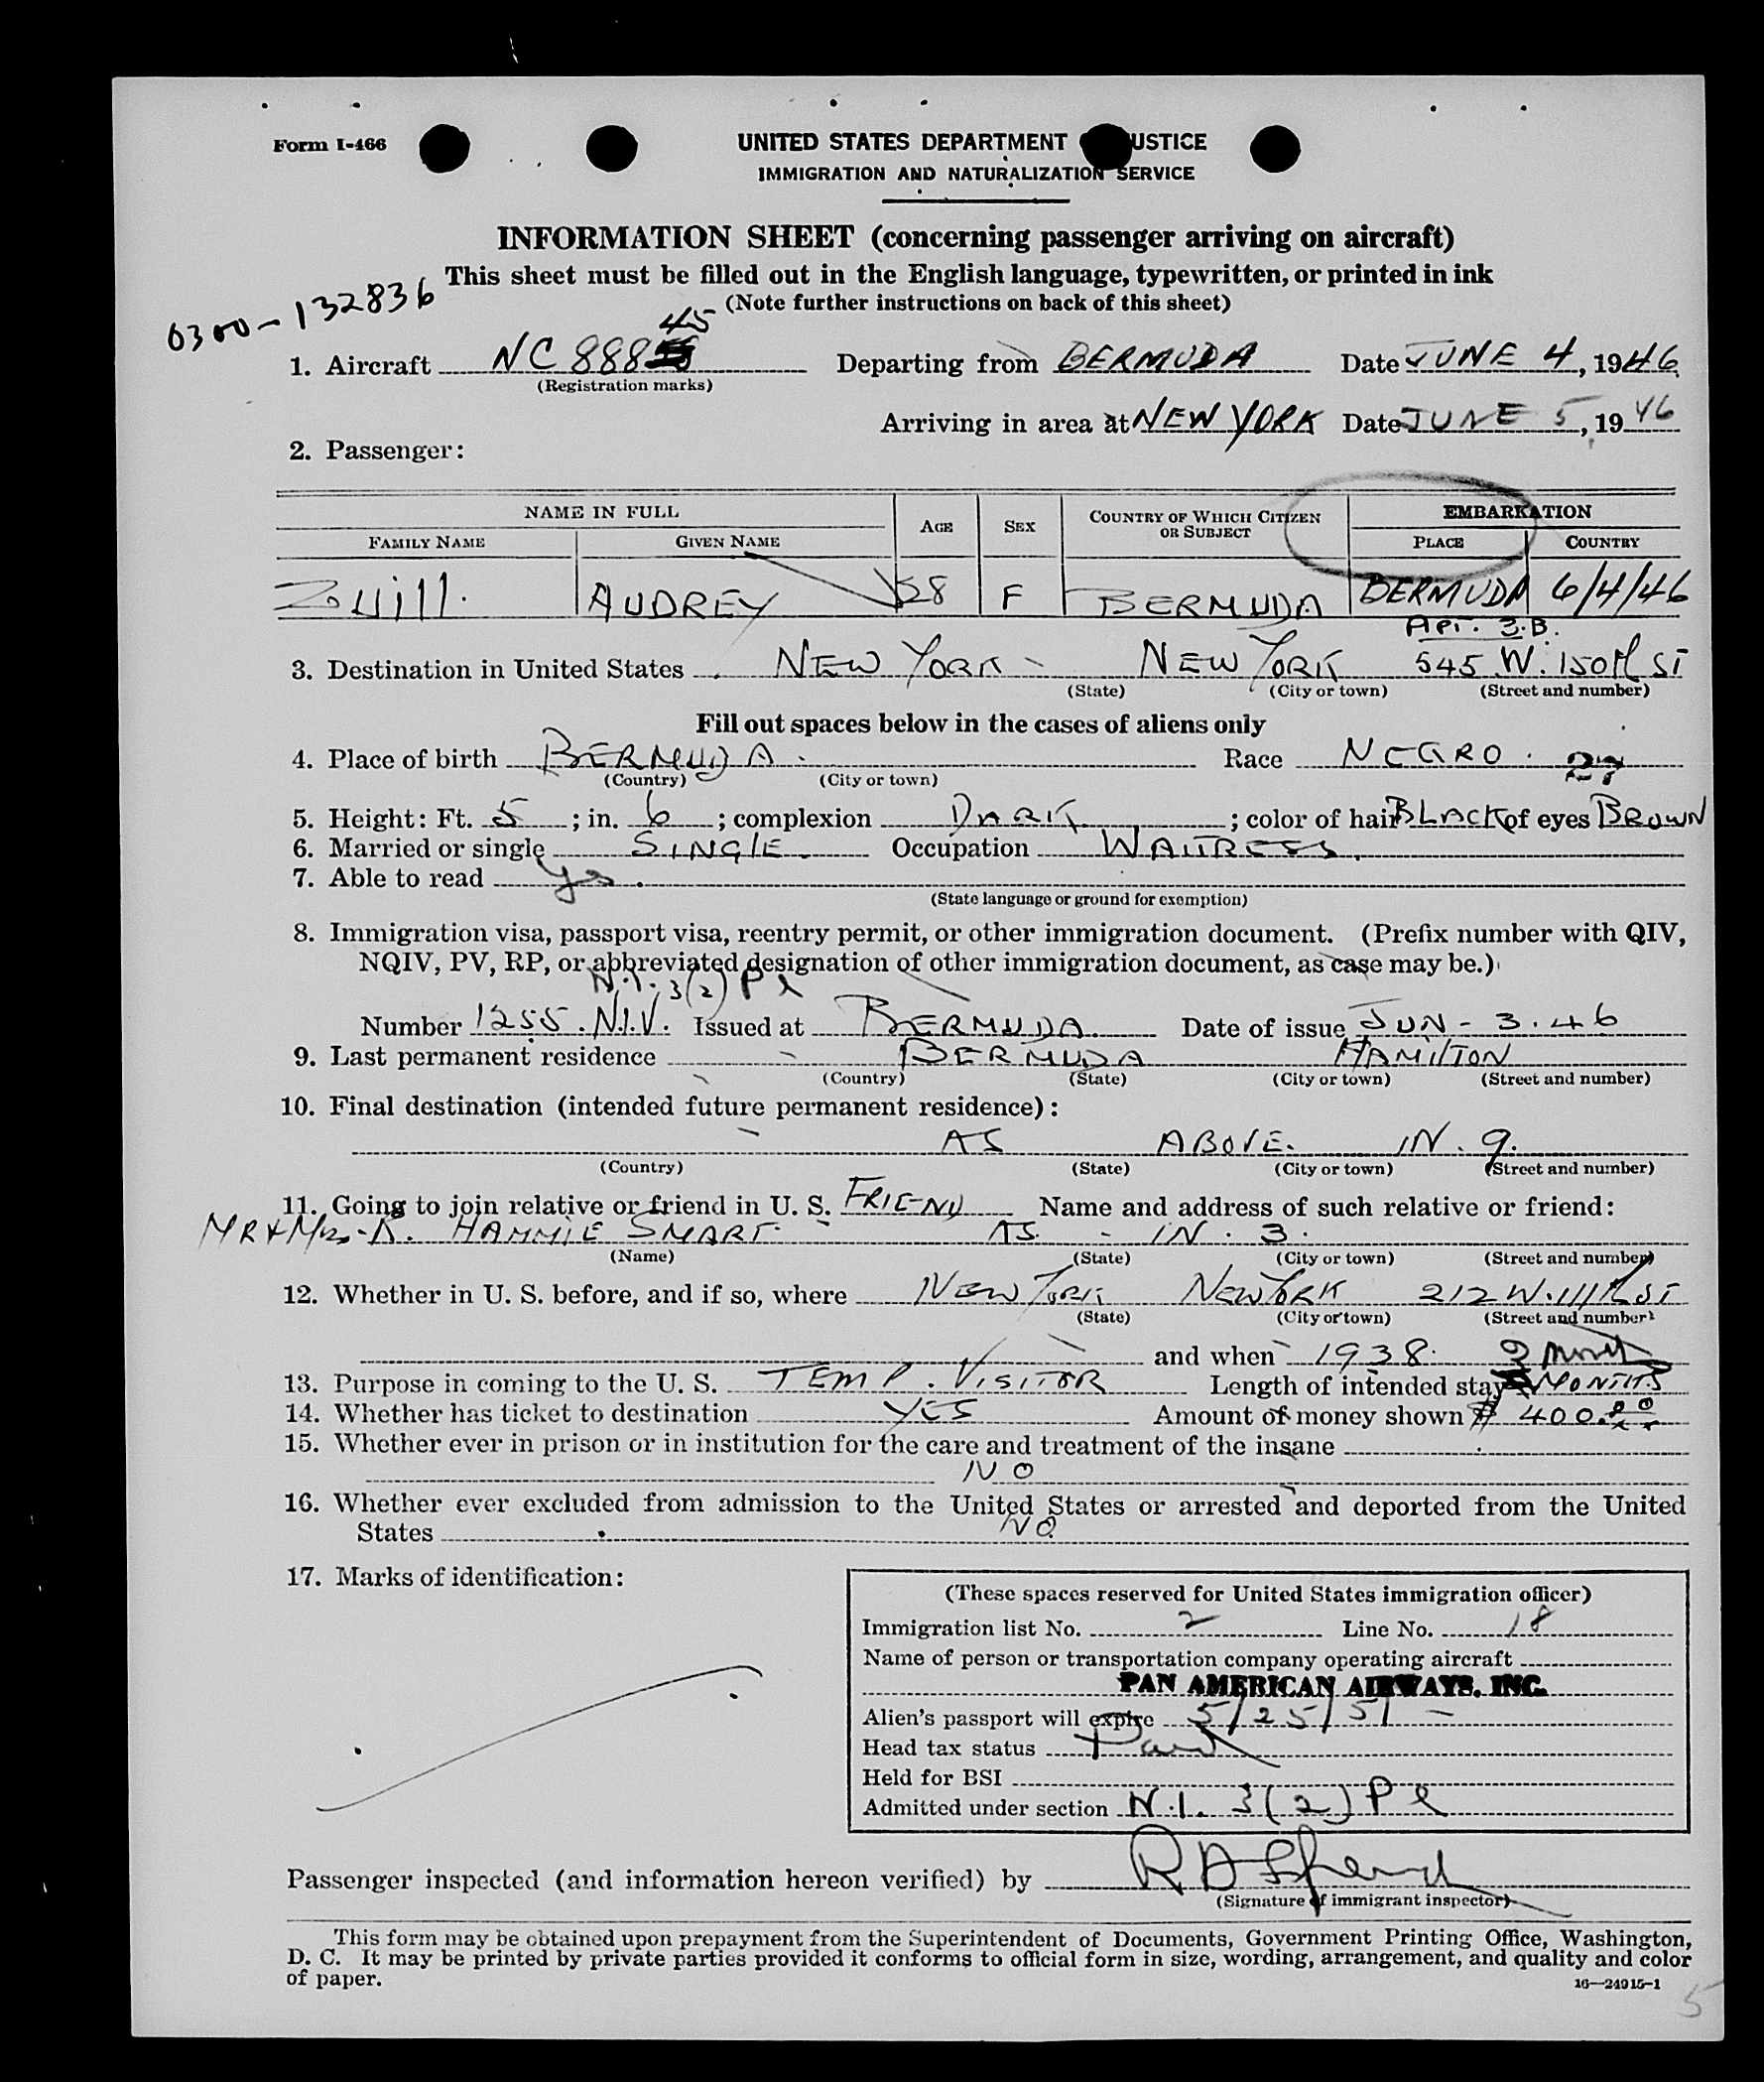 Form I-466
UNITED STATES DEPARTMENT USTICE
IMMIGRATION AND NATURALIZATION SERVICE
INFORMATION SHEET (concerning passenger arriving on aircraft)
This sheet must be filled out in the English language, typewritten, or printed in ink
(Note further instructions on back of this sheet)
0300-132836
45
1. Aircraft NC 888 Departing from BERMUDA Date JUNE 4, 1946
(Registration marks)
Arriving in area at NEW YORK Date JUNE 5, 1946
2. Passenger:
NAME IN FULL AGE SEX COUNTRY OF WHICH CITIZEN OR SUBJECT EMBARKATION
FAMILY NAME GIVEN NAME PLACE COUNTRY
Zuill. AUDREY 28 F BERMUDA BERMUDA 6/4/46
APT. 3.B.
3. Destination in United States NEW YORK - NEW YORK 545 W. 150th ST
(State) (City or town) (Street and number)
Fill out spaces below in the cases of aliens only
4. Place of birth BERMUDA. Race NEGRO.
(Country) (City or town)
5. Height: Ft. 5; in. 6; complexion DARK; color of hair BLACK of eyes BROWN
6. Married or single SINGLE. Occupation WAITRESS.
7. Able to read Yes.
(State language or ground for exemption)
8. Immigration visa, passport visa, reentry permit, or other immigration document. (Prefix number with QIV,
NQIV, PV, RP, or abbreviated designation of other immigration document, as case may be.)
N.I. 3(2) Pl
Number 1255. N.I.V. Issued at BERMUDA Date of issue JUN-3.46
9. Last permanent residence BERMUDA HAMILTON
(Country) (State) (City or town) (Street and number)
10. Final destination (intended future permanent residence):
AS ABOVE. IN. 9.
(Country) (State) (City or town) (Street and number)
11. Going to join relative or friend in U. S. FRIEND Name and address of such relative or friend:
MR & Mrs. HAMMIE SMART. AS - IN. 3.
(Name) (State) (City or town) (Street and number)
12. Whether in U. S. before, and if so, where NEW YORK NEW YORK 212 W. 111th ST
(State) (City or town) (Street and number)
and when 1938.
13. Purpose in coming to the U. S. TEMP. VISITOR Length of intended stay MONTHS
14. Whether has ticket to destination YES Amount of money shown $ 400.00
15. Whether ever in prison or in institution for the care and treatment of the insane
NO
16. Whether ever excluded from admission to the United States or arrested and deported from the United
States NO.
17. Marks of identification:
(These spaces reserved for United States immigration officer)
Immigration list No. 2 Line No. 18
Name of person or transportation company operating aircraft
PAN AMERICAN AIRWAYS, INC.
Alien's passport will expire 5/25/51 -
Head tax status Paid
Held for BSI
Admitted under section N.I. 3(2) Pl
Passenger inspected (and information hereon verified) by
(Signature of immigrant inspector)
This form may be obtained upon prepayment from the Superintendent of Documents, Government Printing Office, Washington,
D. C. It may be printed by private parties provided it conforms to official form in size, wording, arrangement, and quality and color
of paper.
16—24915-1
5